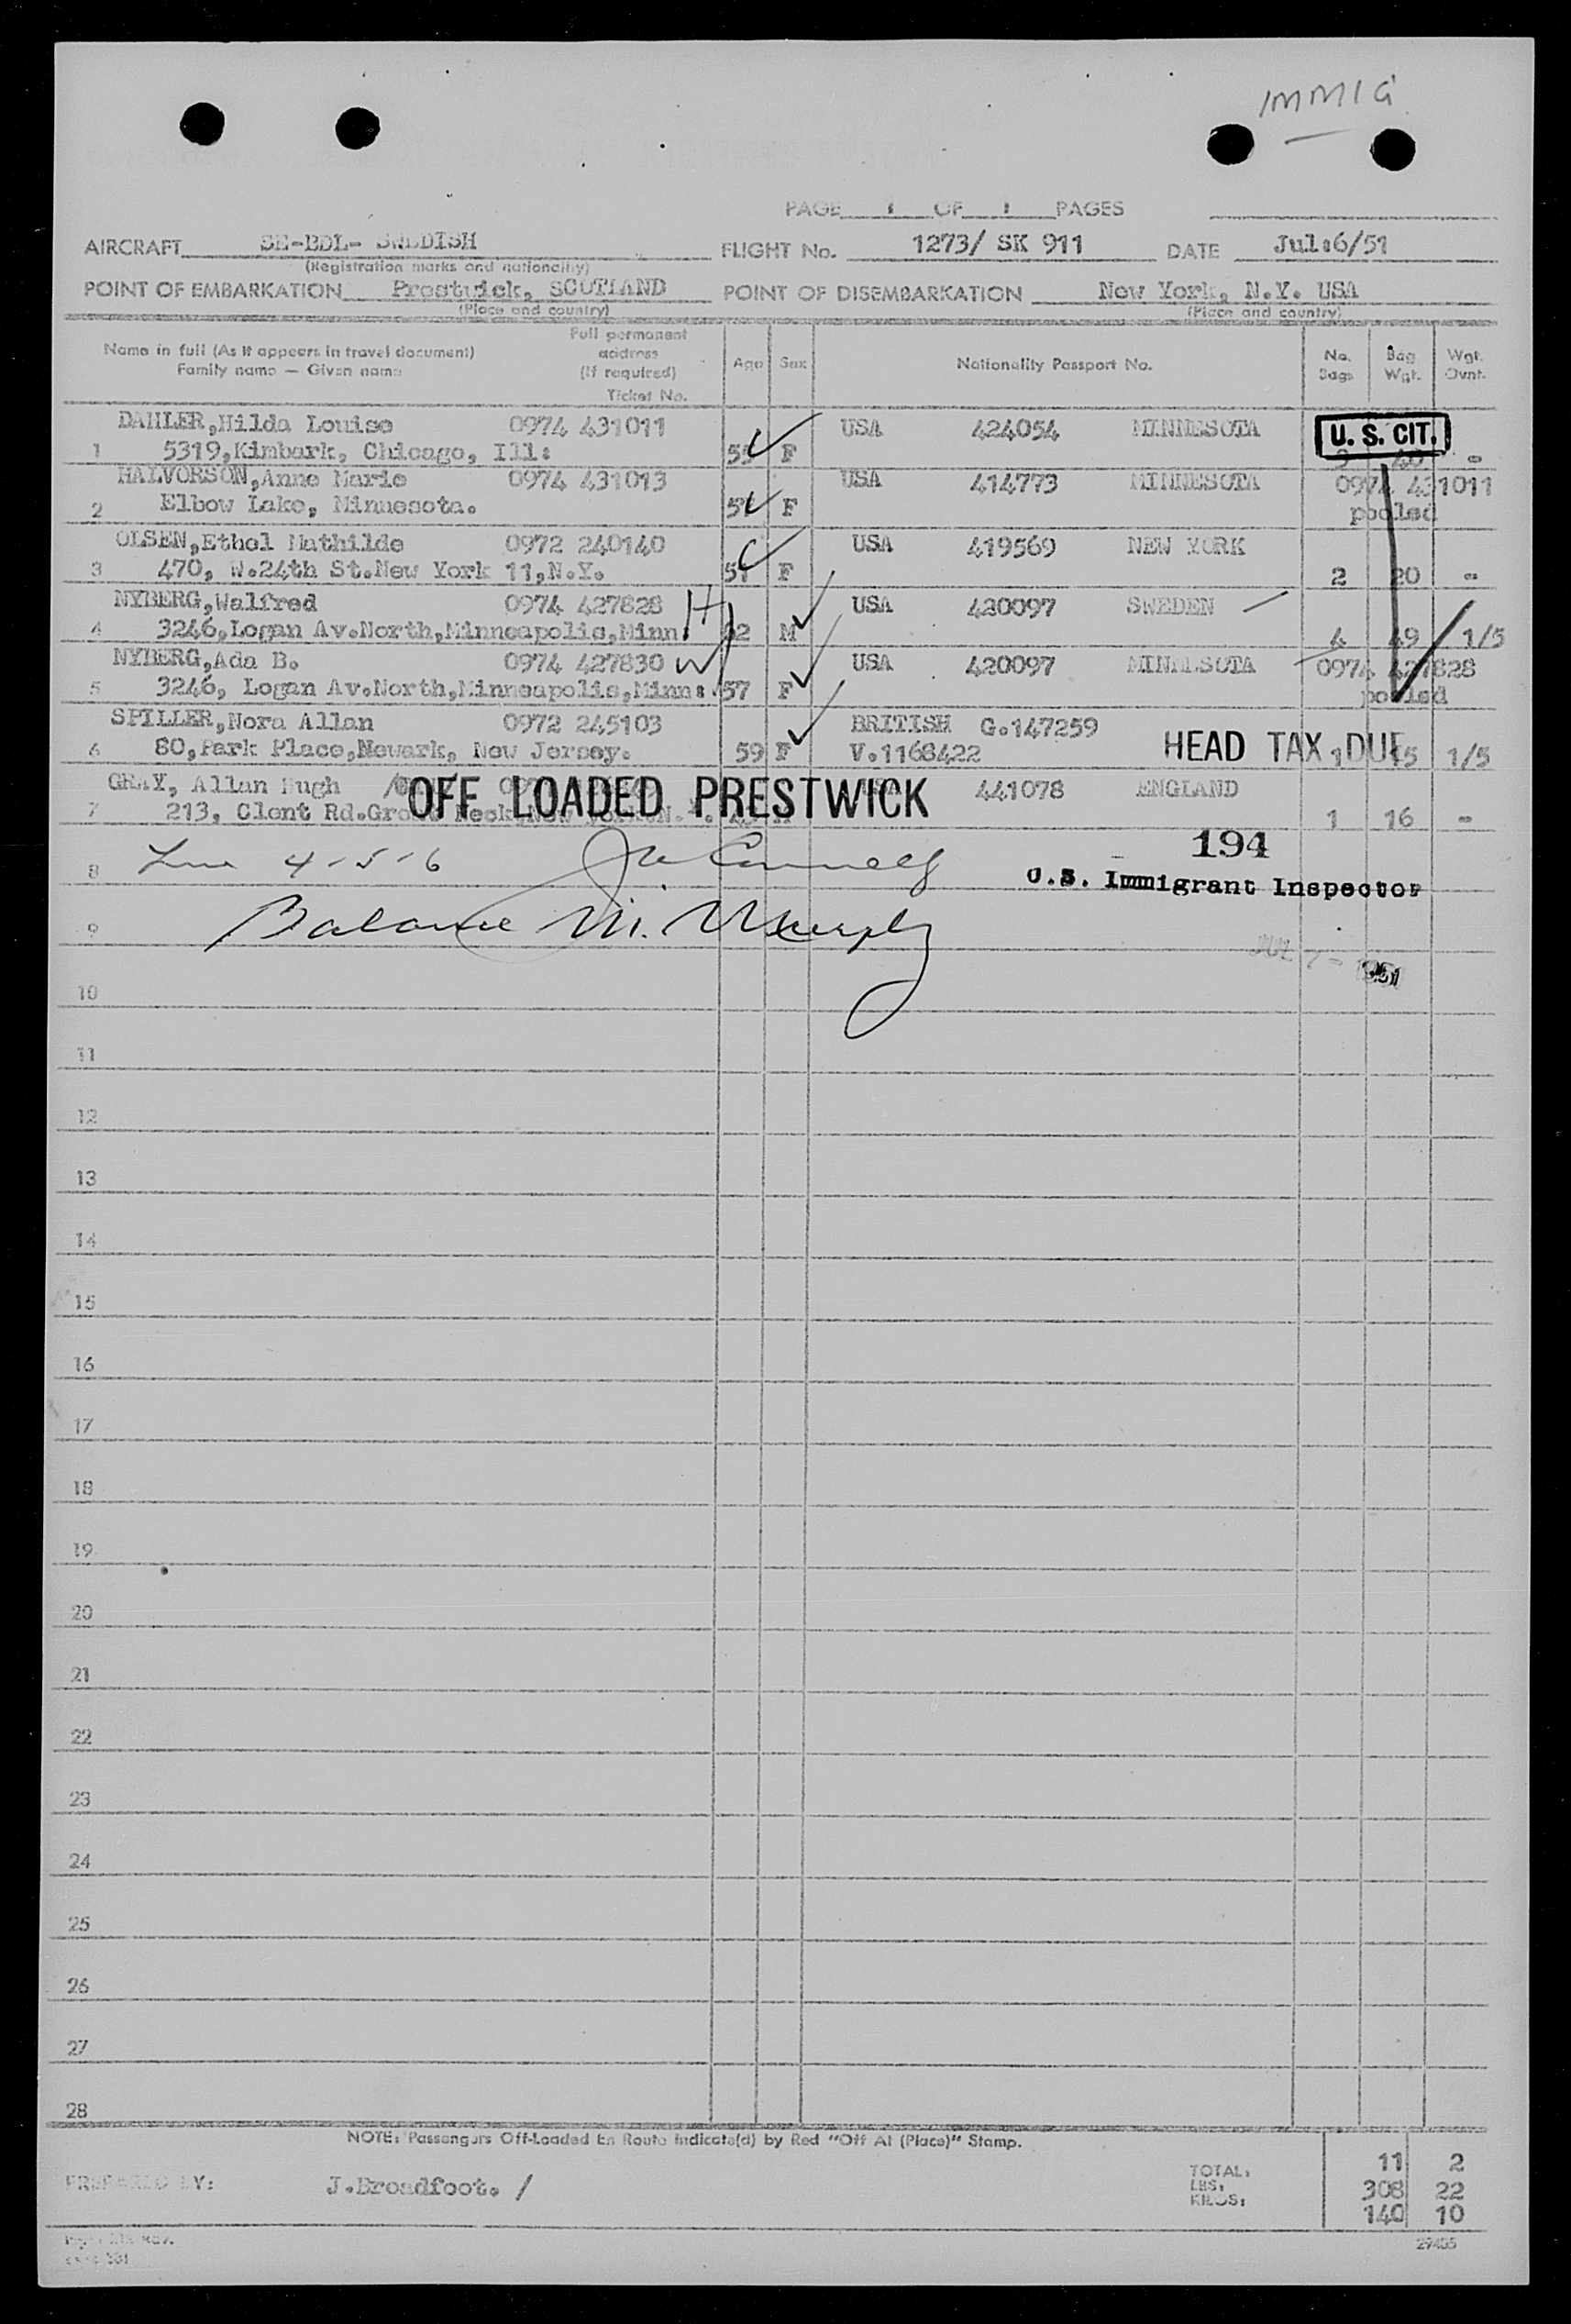 IMMIG
PAGE 1 OF 1 PAGES
AIRCRAFT SE-BDL- SWEDISH FLIGHT No. 1273/ SK 911 DATE Jul:6/51
(Registration marks and nationality)
POINT OF EMBARKATION Prestwick, SCOTLAND POINT OF DISEMBARKATION New York, N.Y. USA
(Place and country) (Place and country)
Name in full (As it appears in travel document) Family name — Given name Full permanent address (If required) Ticket No. Age Sex Nationality Passport No. No. Bags Bag Wgt. Wgt. Ovnt.
DAHLER,Hilda Louise 0974 431011 USA 424054 MINNESOTA U. S. CIT.
1 5319,Kimbark, Chicago, Ill: F -
HALVORSON,Anne Marie 0974 431013 USA 414773 MINNESOTA 0974 431011
2 Elbow Lake, Minnesota. F pooled
OLSEN,Ethel Mathilde 0972 240140 USA 419569 NEW YORK
3 470, W.24th St.New York 11,N.Y. 57 F 2 20 -
NYBERG,Walfred 0974 427828 H USA 420097 SWEDEN
4 3246,Logan Av.North,Minneapolis,Minn: M 4 49 1/5
NYBERG,Ada B. 0974 427830 W USA 420097 MINNESOTA 0974 427828
5 3246, Logan Av.North,Minneapolis,Minn: 57 F pooled
SPILLER,Nora Allan 0972 245103 BRITISH G.147259
6 80,Park Place,Newark, New Jersey. 59 F V.1168422 HEAD TAX DUE 1 15 1/5
GRAY, Allan Hugh 441078 ENGLAND
OFF LOADED PRESTWICK
7 213, Clent Rd.Great Neck 1 16 -
194
8 Line 4-5-6 J McConnell U.S. Immigrant Inspector
9 Balance M. Murphy
JUL 7 - 1951
10
11
12
13
14
15
16
17
18
19
20
21
22
23
24
25
26
27
28
NOTE: Passengers Off-Loaded En Route Indicate(d) by Red "Off At (Place)" Stamp.
PREPARED BY: J.Broadfoot. /
TOTAL: 11 2
LBS: 308 22
KILOS: 140 10